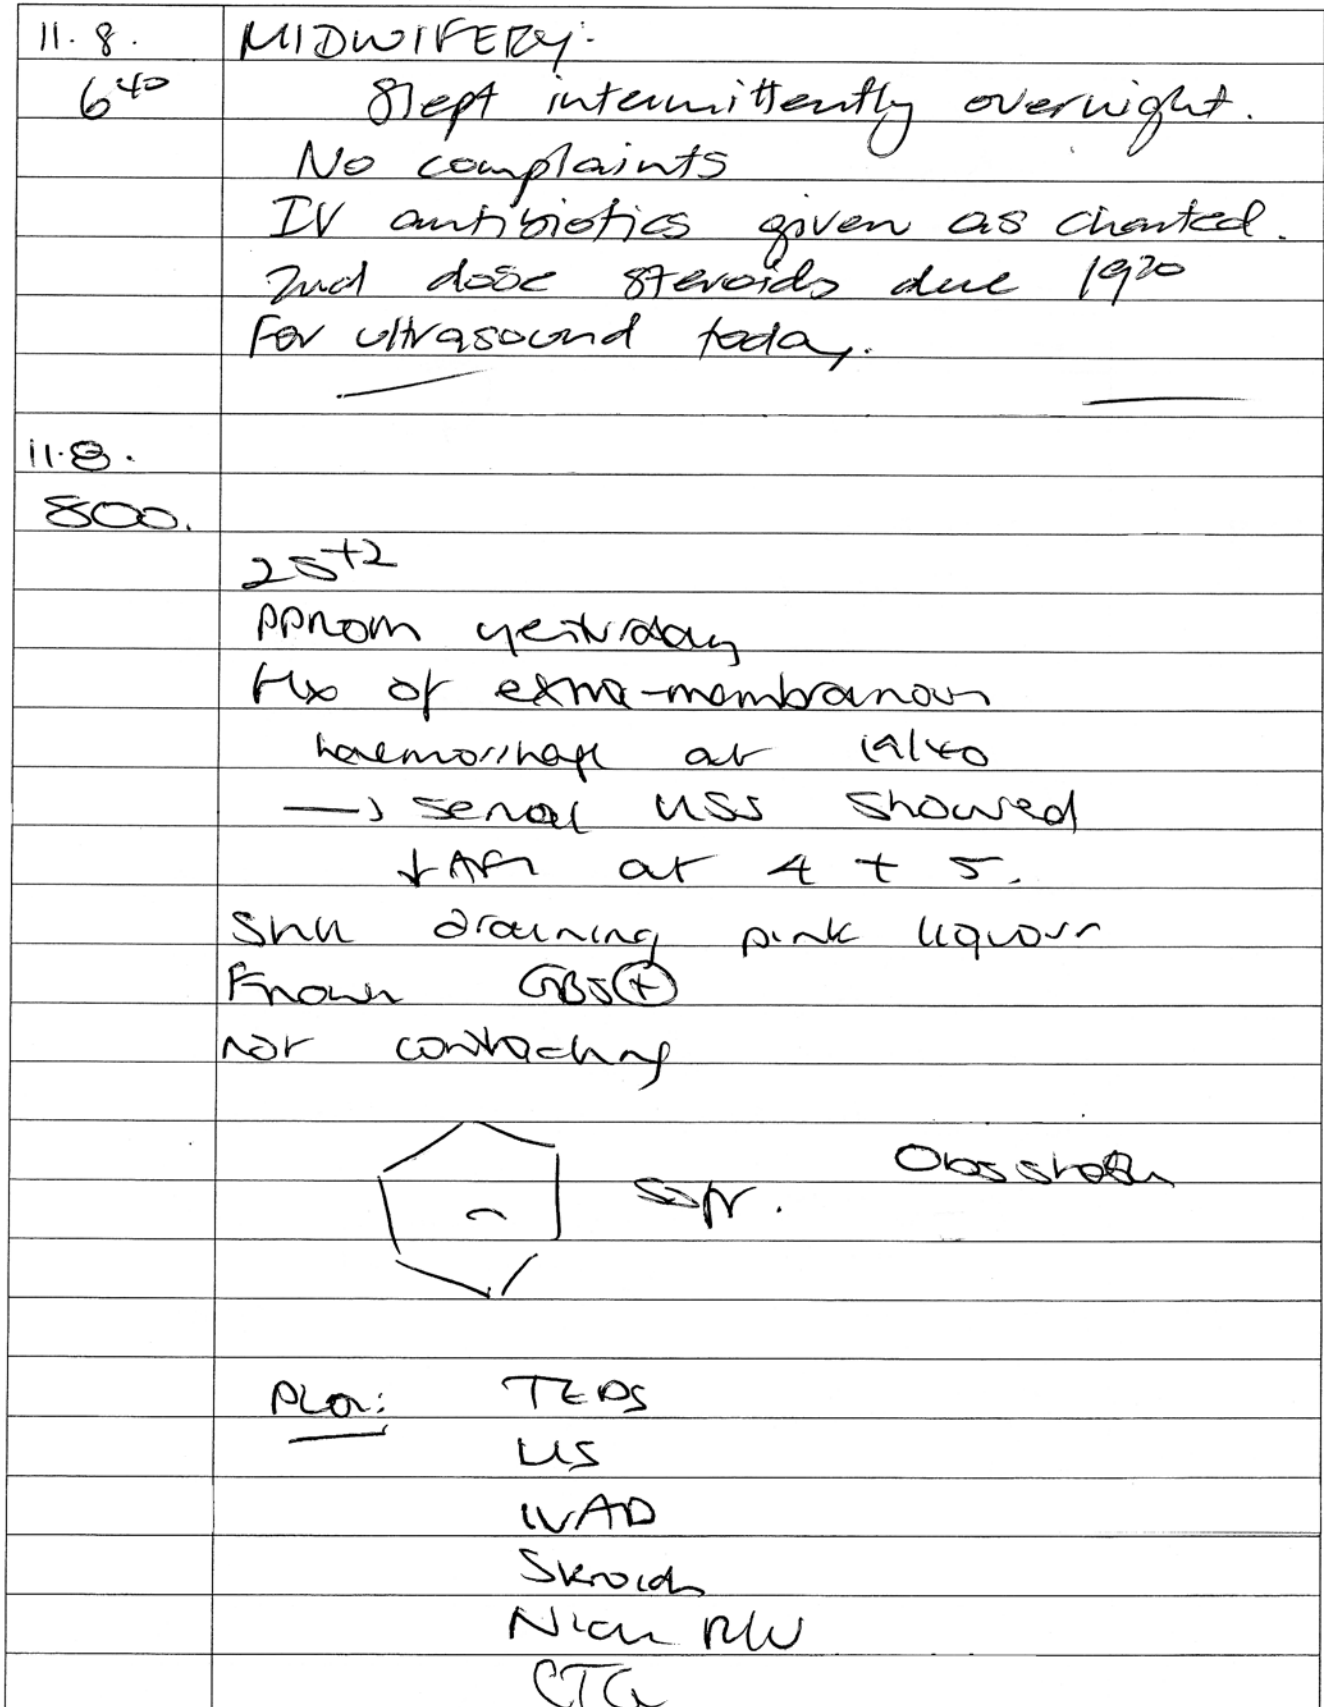 11.8. MIDWIFERY:
6⁴⁰ Slept intermittently overnight.
No complaints
IV antibiotics given as charted.
2nd dose steroids due 19²⁰
For ultrasound today.
11.8.
800.
25⁺²
PPROM yesterday
Hx of extra-membranous
haemorrhage at 19/40
→ serial USS showed
↓AFI at 4 + 5.
Still draining pink liquour
Known GBS⊕
not contracting
SNT. Obs stable
Plan: TEDS
US
IVAB
Steroids
Nicu R/W
CTG